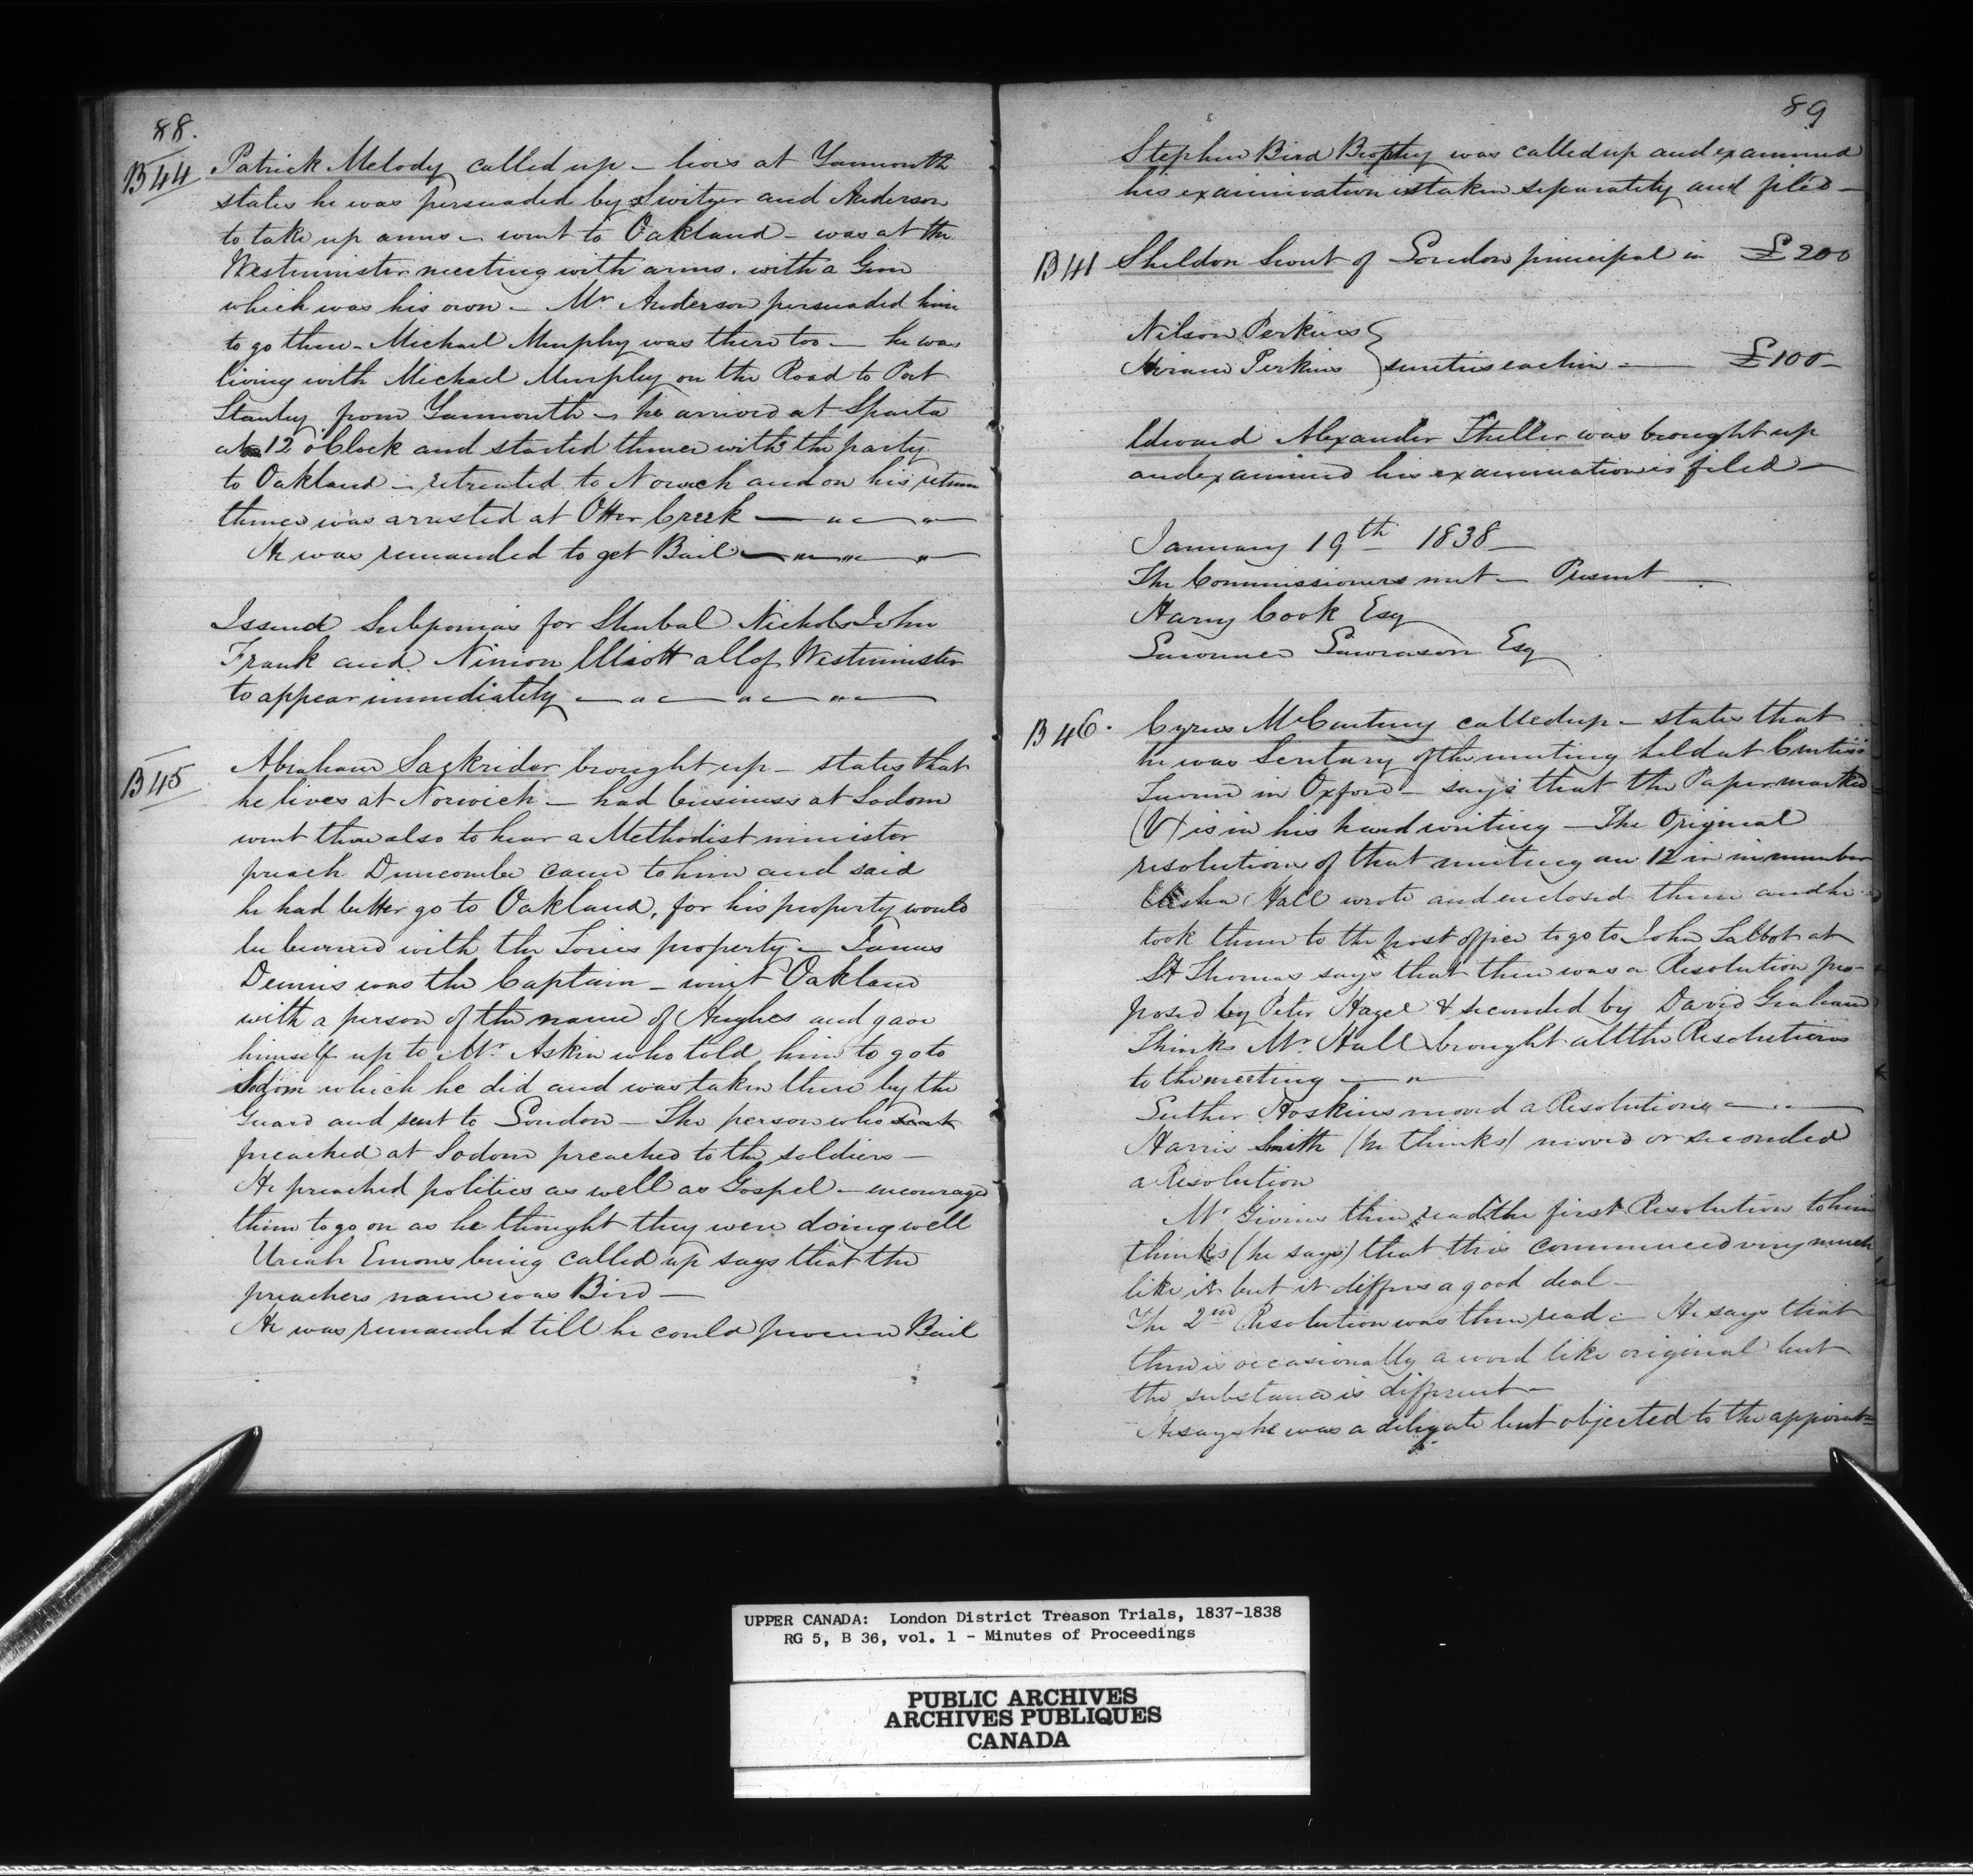 88.
B 44 Patrick Melody called up – lives at Yarmouth
states he was persuaded by Switzer and Anderson
to take up arms – went to Oakland – was at the
Westminister meeting with arms. with a Gun
which was his own – Mr Anderson persuaded him
to go there – Michael Murphy was there too – he was
living with Michael Murphy on the Road to Port
Stanley from Yarmouth – he arrived at Sparta
at 12 o'Clock and started thence with the party
to Oakland – retreated to Norwich and on his return
thence was arrested at Otter Creek –
He was remanded to get Bail –
Issued Subpoenias for Shubal Nichols John
Frank and Ninion Elliott all of Westminister
to appear immediately –
B 45 Abraham Sackrider brought up – states that
he lives at Norwich – had business at Sodom
went there also to hear a Methodist minister
preach Duncombe came to him and said
he had better go to Oakland, for his property would
be burned with the Tories property – James
Dennis was the Captain – went Oakland
with a person of the name of Hughes and gave
himself up to Mr. Askin who told him to go to
Sodom which he did and was taken there by the
Guard and sent to London – The person who
preached at Sodom preached to the soldiers –
He preached politics as well as Gospel – encouraged
them to go on as he thought they were doing well
Uriah Emons being called up says that the
preachers name was Bird –
He was remanded till he could procure Bail
89
Stephen Bird Brophy was called up and examined
his examination is taken separately and filed –
B 41 Sheldon Swet of London principal in £200
Nilson Perkins
Hiram Perkins } sureties each in – £100–
Edward Alexander Theller was brought up
and examined his examination is filed –
January 19th 1838–
The Commissioners met – Present –
Harry Cook Esq
Lawrence Lawrason Esq
B 46. Cyrus McCartney called up – states that
he was Sentary of the meeting held at Curtiss
Tavern in Oxford – says that the Paper marked
(V) is in his hand writing – The Original
resolutions of that meeting are 12 in number
Elisha Hall wrote and enclosed them and he
took them to the post office to go to John Talbot at
St Thomas says that there was a Resolution pro-
posed by Peter Hagel & seconded by David Graham
Thinks Mr. Hall brought all the Resolutions
to the meeting –
Luther Hoskins moved a Resolution –
Harris Smith (he thinks) moved or seconded
a Resolution
Mr Givins then read the first Resolution to him
thinks (he says) that this commenced very much
like it but it differs a good deal –
The 2nd Resolution was then read – He says that
there is occasionally a word like original but
the substance is different –
He says he was a deligate but objected to the appoint=
UPPER CANADA: London District Treason Trials, 1837-1838
RG 5, B 36, vol. 1 - Minutes of Proceedings
PUBLIC ARCHIVES
ARCHIVES PUBLIQUES
CANADA